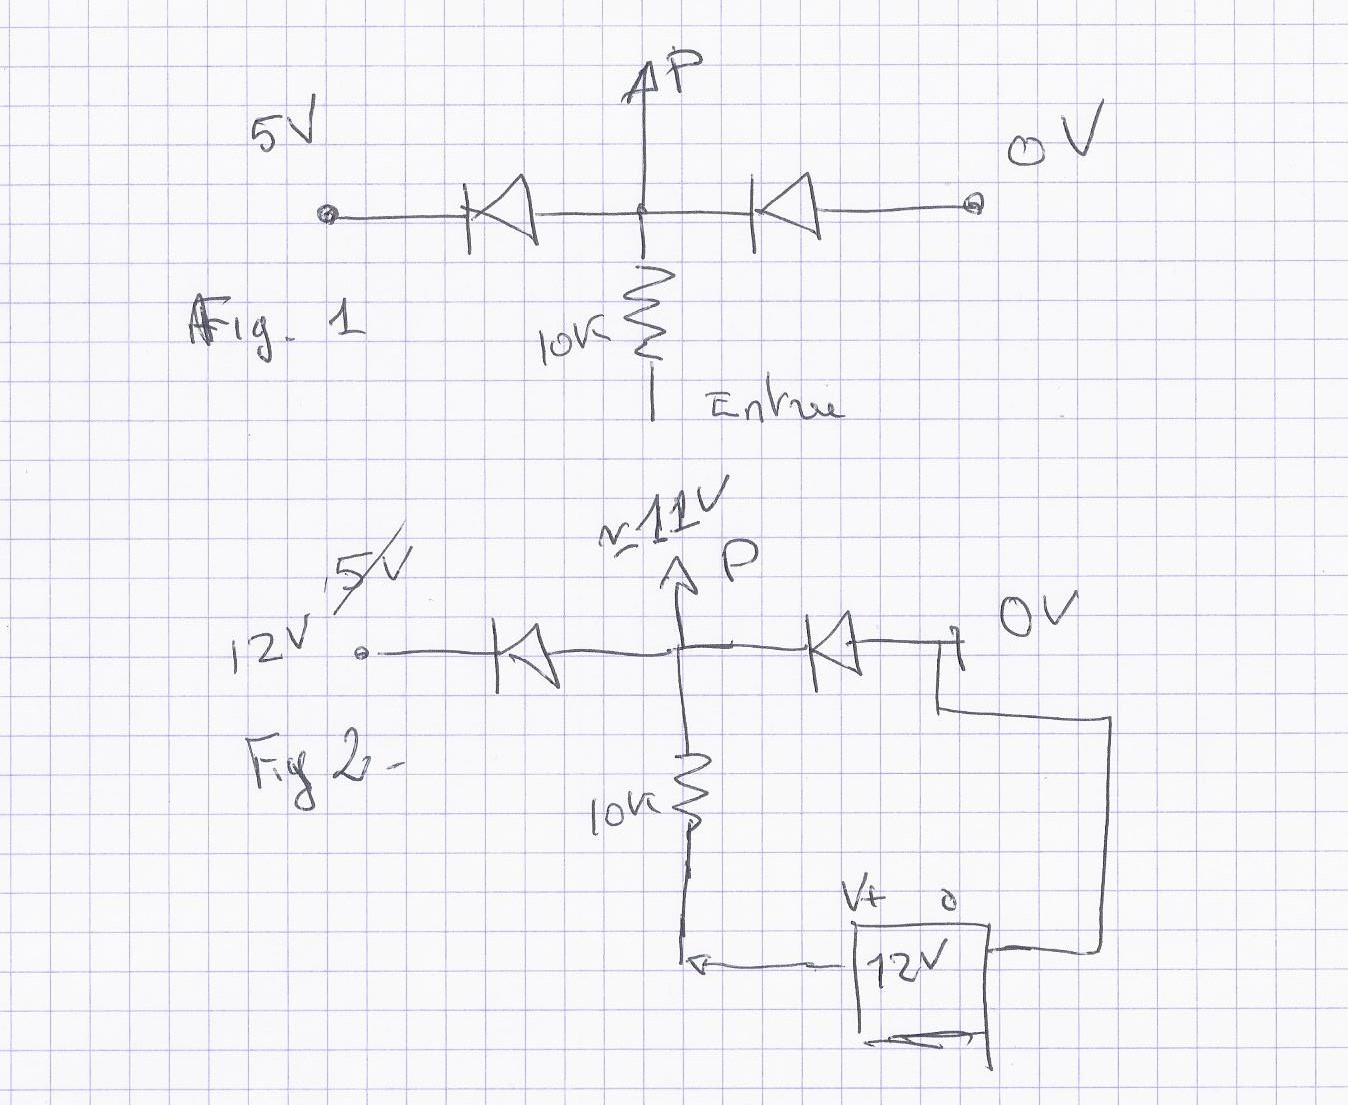 P
5V
0V
Fig. 1
10K
Entrée
≃11V
P
5V
12V
0V
Fig 2-
10K
V+ 0
12V